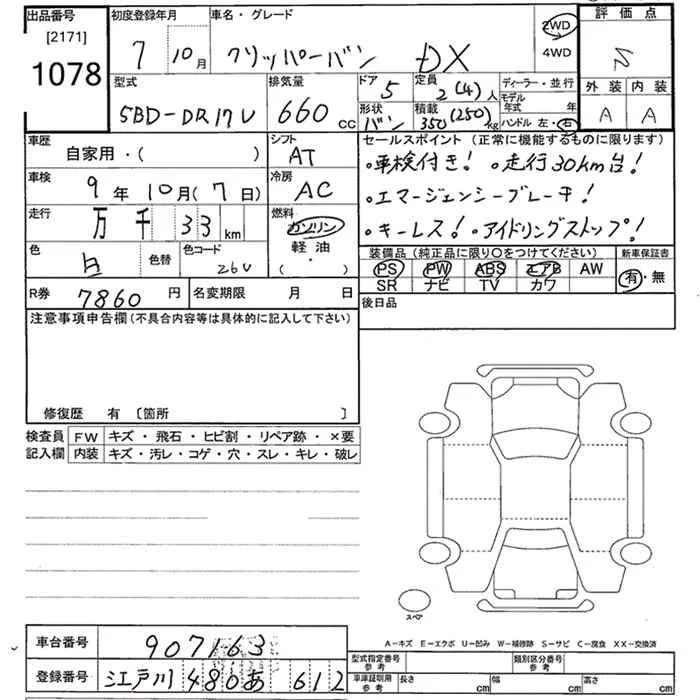 出品番号
[2171]
1078
初度登録年月
7 10月
車名・グレード
クリッパーバン DX
2WD
4WD
評価点
S
外装 内装
A A
型式
5BD-DR17V
排気量
660 cc
ドア 5
形状 バン
定員 2(4)人
積載 350(250)kg
ディーラー・並行
モデル年式 年
ハンドル 左・右
車歴
自家用・( )
シフト
AT
車検
9年10月(7日)
冷房
AC
走行
万千33km
燃料
ガソリン
軽油
( )
色
白
色替
色コード
26U
R券 7860円
名変期限 月 日
セールスポイント (正常に機能するものに限ります)
・車検付き! ・走行30km台!
・エマージェンシーブレーキ!
・キーレス! ・アイドリングストップ!
装備品 (純正品に限り○をつけてください)
PS PW ABS エアB AW
SR ナビ TV カワ
新車保証書
有・無
後日品
注意事項申告欄 (不具合内容等は具体的に記入して下さい)
修復歴 有 〔箇所 〕
検査員記入欄
FW キズ・飛石・ヒビ割・リペア跡・×要
内装 キズ・汚レ・コゲ・穴・スレ・キレ・破レ
スペア
A-キズ E-エクボ U-凹み W-補修跡 S-サビ C-腐食 XX-交換済
車台番号 907163
登録番号 江戸川 480 あ 612
型式指定番号 参考
類別区分番号 参考
車庫証明用 参考
長さ cm 幅 cm 高さ cm